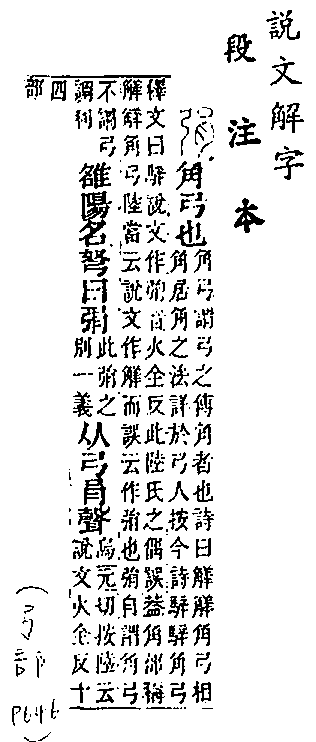 說文解字
段注本
弲 角弓也 角弓謂弓之傅角者也詩曰觲觲角弓相
角居角之法詳於弓人按今詩騂騂角弓
釋文曰騂說文作弲音火全反此陸氏之偶誤葢角部稱
觲觲角弓陸當云說文作觲而誤云作弲也弲自謂角弓
不謂弓調利 雒陽名弩曰弲 此弲之別一義 从弓肙聲 烏元切按陸云說文火全反十
四
部
(弓部 P646)